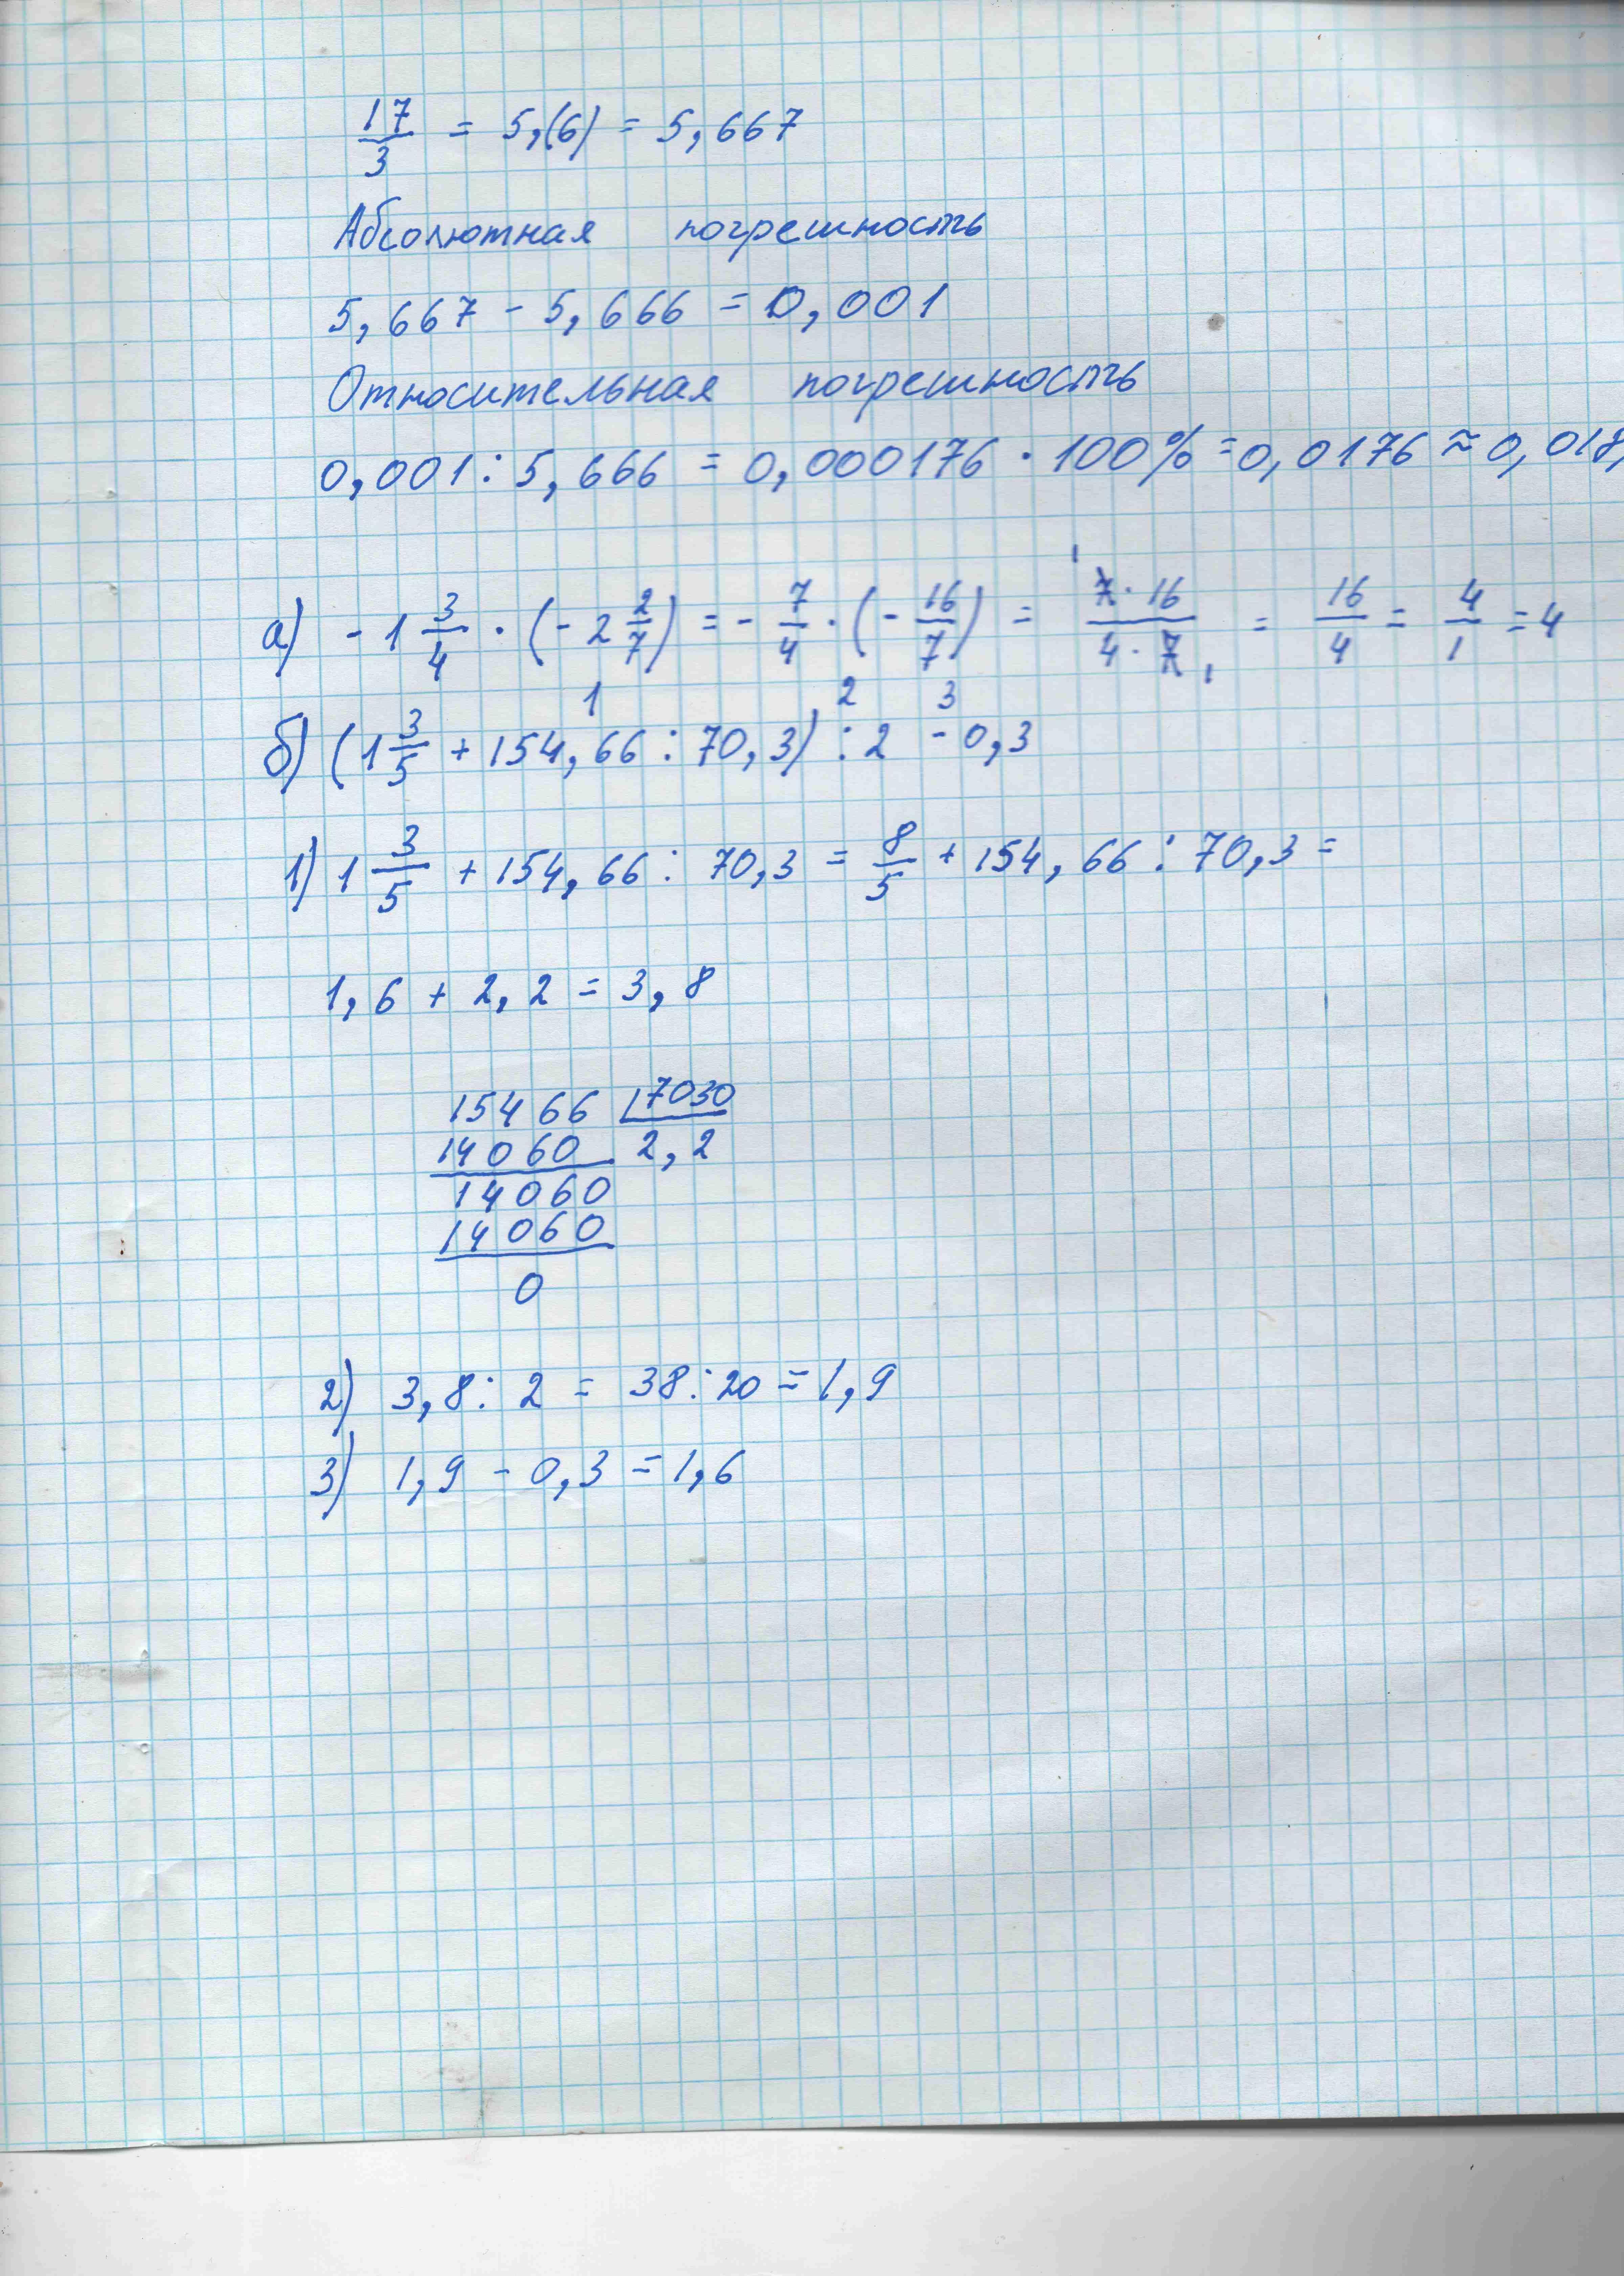 17/3 = 5,(6) = 5,667
Абсолютная погрешность
5,667 - 5,666 = 0,001
Относительная погрешность
0,001 : 5,666 = 0,000176 · 100% = 0,0176 ≈ 0,018,
а) - 1 3/4 · (- 2 2/7) = - 7/4 · (- 16/7) = 7 · 16 / 4 · 7 = 16/4 = 4/1 = 4
1 2 3
б) (1 3/5 + 154,66 : 70,3) : 2 - 0,3
1) 1 3/5 + 154,66 : 70,3 = 8/5 + 154,66 : 70,3 =
1,6 + 2,2 = 3,8
15466 7030
14060 2,2
14060
14060
0
2) 3,8 : 2 = 38 : 20 = 1,9
3) 1,9 - 0,3 = 1,6